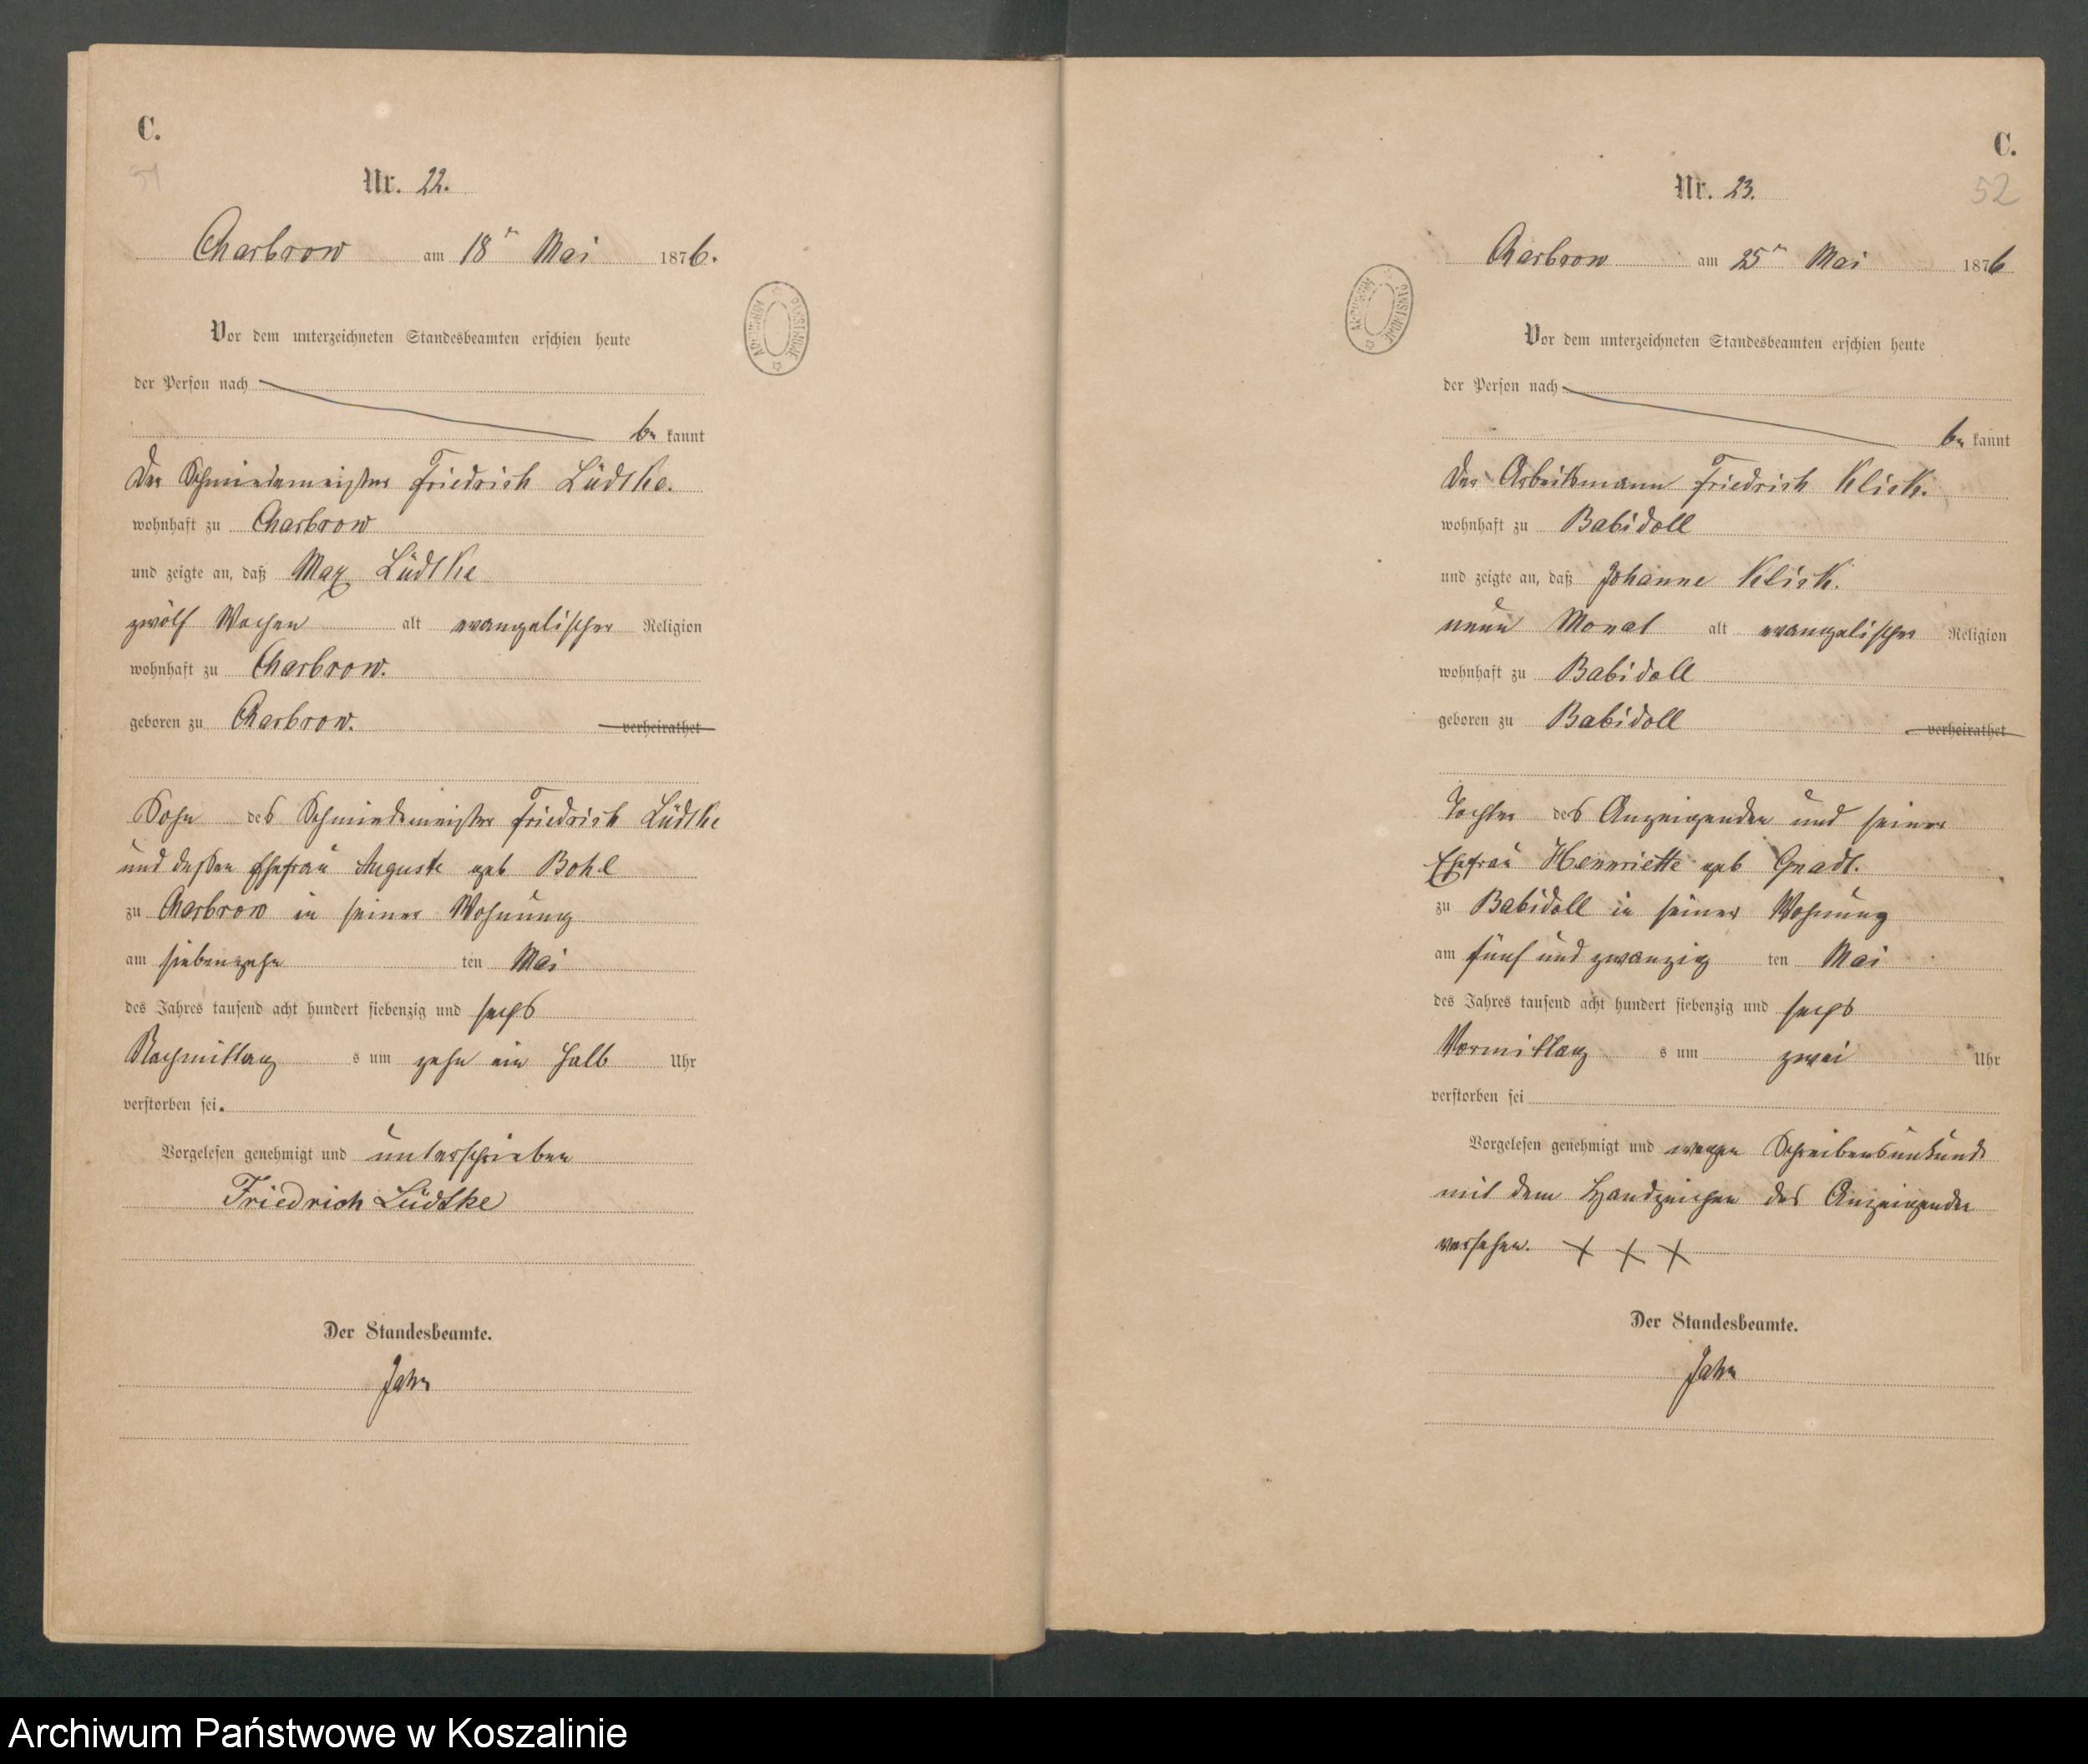 C.
51
Nr. 22.
Charbrow am 18ten Mai 1876.
Vor dem unterzeichneten Standesbeamten erschien heute
der Person nach
be kannt
Der Schmiedemeister Friedrich Lüdtke.
wohnhaft zu Charbrow
und zeigte an, daß Max Lüdtke
zwölf Wochen alt evangelischer Religion
wohnhaft zu Charbrow.
geboren zu Charbrow. verheirathet
Sohn des Schmiedemeister Friedrich Lüdtke
und dessen Ehefrau Auguste geb Bohl
zu Charbrow in seiner Wohnung
am siebenzehn ten Mai
des Jahres tausend acht hundert siebenzig und sechs
Nachmittag s um zehn ein halb Uhr
verstorben sei.
Vorgelesen genehmigt und unterschrieben
Friedrich Lüdtke
Der Standesbeamte.
Jahn
ARCHIWUM PAŃSTWOWE
C.
52
Nr. 23.
Charbrow am 25ten Mai 1876
Vor dem unterzeichneten Standesbeamten erschien heute
der Person nach
be kannt
Der Arbeitsmann Friedrich Klick.
wohnhaft zu Babidoll
und zeigte an, daß Johanne Klick.
neun Monat alt evangelischer Religion
wohnhaft zu Babidoll
geboren zu Babidoll verheirathet
Tochter des Anzeigenden und seiner
Ehefrau Hennriette geb Gnadt.
zu Babidoll in seiner Wohnung
am fünf und zwanzig ten Mai
des Jahres tausend acht hundert siebenzig und sechs
Vormittag s um zwei Uhr
verstorben sei
Vorgelesen genehmigt und wegen Schreibensunkunde
mit dem Handzeichen des Anzeigenden
versehen. X X X
Der Standesbeamte.
Jahn
ARCHIWUM PAŃSTWOWE
Archiwum Państwowe w Koszalinie